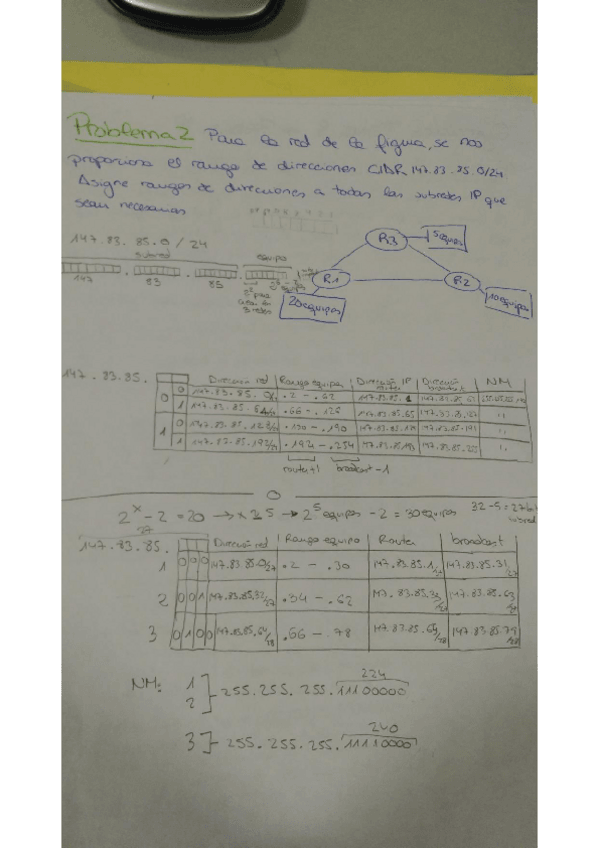 Problema 2 Para la red de la figura, se nos
proporciona el rango de direcciones CIDR 147.83.85.0/24
Asigne rangos de direcciones a todas las subredes IP que
sean necesarias
147.83.85.0/24
subred equipo
147 83 85
R3
R1
R2
5 equipos
20 equipos
10 equipos
147.83.85.
Dirección red Rango equipos Dirección IP router Dirección broadcast NM
0 0 147.83.85.0 .2 - .62 147.83.85.1 147.83.85.63
1 147.83.85.64 .66 - .126 147.83.85.65 147.83.85.127 "
1 0 147.83.85.128 .130 - .190 147.83.85.129 147.83.85.191 "
1 147.83.85.192 .194 - .254 147.83.85.193 147.83.85.255 "
router+1 broadcast-1
2^x - 2 = 20 → x = 5 → 2^5 equipos - 2 = 30 equipos 32 - 5 = 27 bits
27 subred
147.83.85. Dirección red Rango equipo Router broadcast
1 0 0 0 147.83.85.0/27 .2 - .30 147.83.85.1/27 147.83.85.31/27
2 0 0 1 147.83.85.32/27 .34 - .62 147.83.85.33/27 147.83.85.63/27
3 0 1 0 0 147.83.85.64/28 .66 - .78 147.83.85.65/28 147.83.85.79/28
NM: 1 224
2 255.255.255.11100000
240
3 255.255.255.11110000